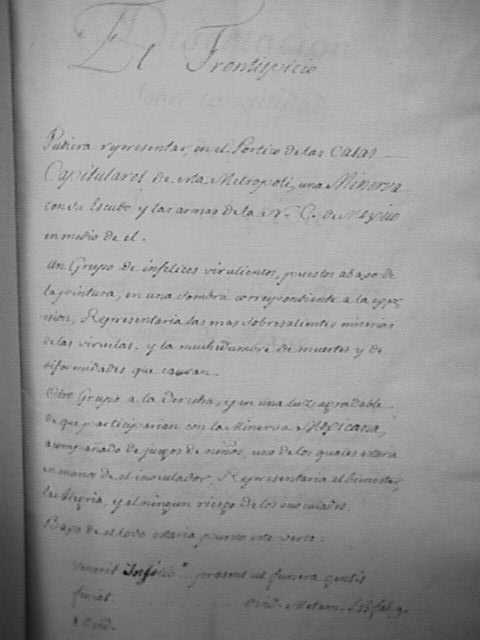 El Frontispicio
Pudiera representar, en el Portico de las Casas
Capitulares de esta Metropoli, una Minerva
con su Escudo y las armas de la N. C. de Mexico
en medio de el.
Un Grupo de infelices virulientos, puestos abaxo de
la pintura, en una sombra correspondiente a la
Representaria las mas sobresalientes miserias
de las viruelas, y la muchedumbre de muertes y de
diformidades que causan.
Otro Grupo a la Derecha, y en una luz agradable
de que participarian con la Minerva Mexicana,
acompañado de juegos de niños, uno de los quales estará
en manos de el inoculador, Representaria el bienestar,
la Alegria, y el ningun riesgo de los inoculados.
Baxo de el todo estaria puesto este verso.
funera gentis
Ovid. Metam.